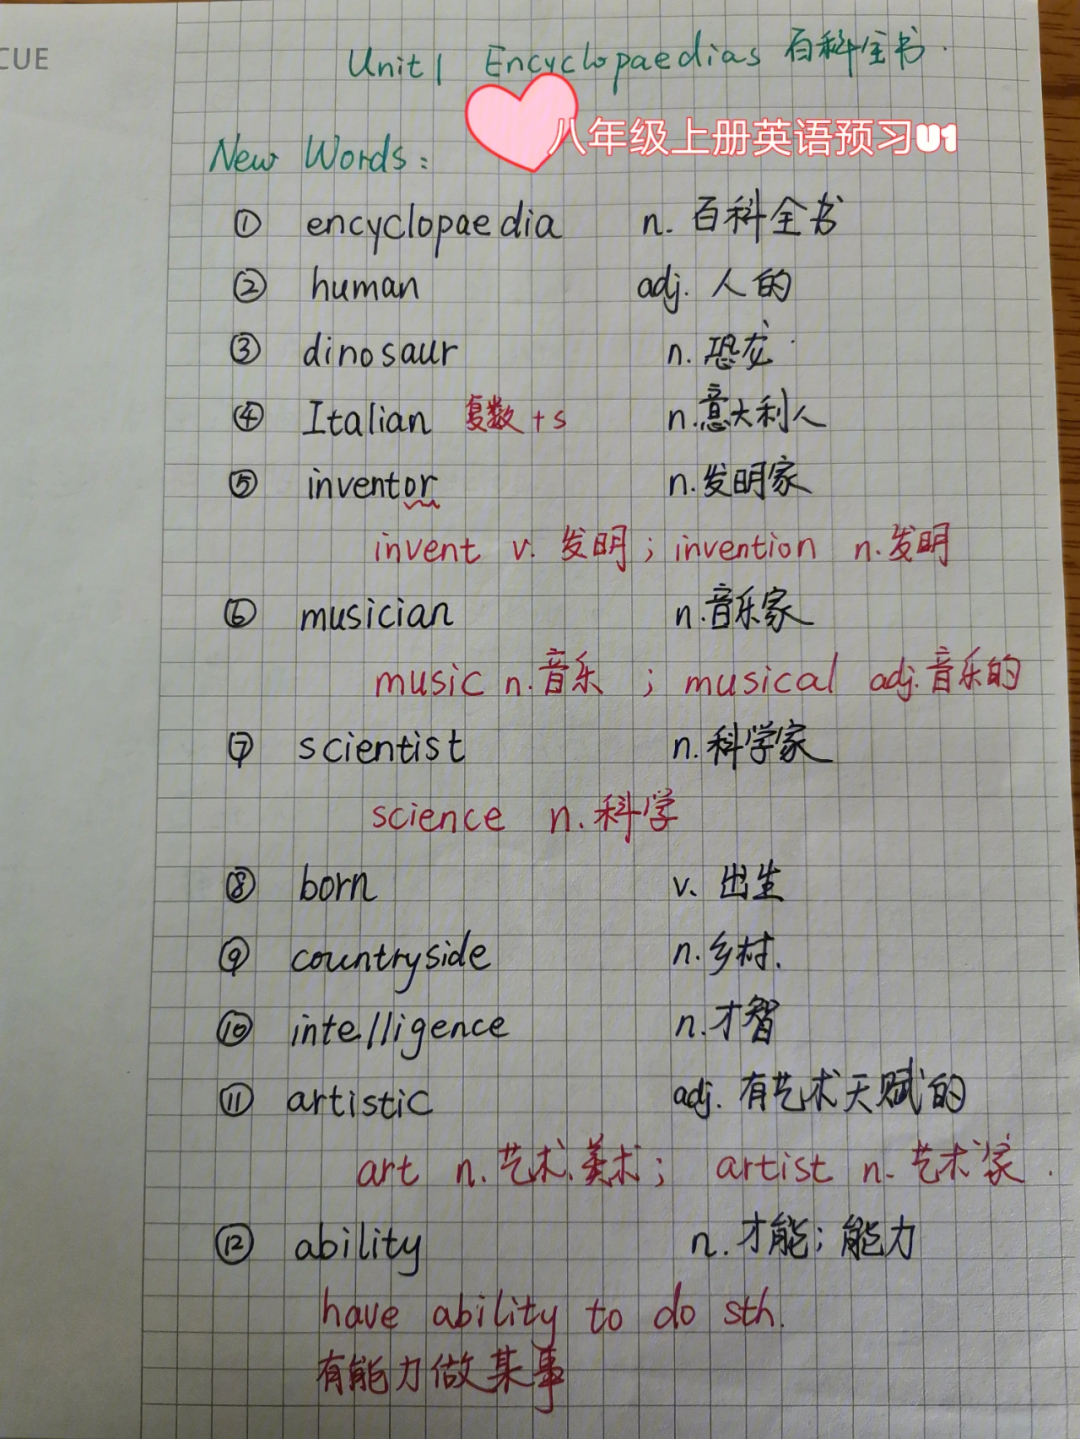 CUE
Unit 1 Encyclopaedias 百科全书.
八年级上册英语预习U1
New Words:
① encyclopaedia n. 百科全书
② human adj. 人的
③ dinosaur n. 恐龙
④ Italian 复数+s n. 意大利人
⑤ inventor n. 发明家
invent v. 发明; invention n. 发明
⑥ musician n. 音乐家
music n. 音乐 ; musical adj. 音乐的
⑦ scientist n. 科学家
science n. 科学
⑧ born v. 出生
⑨ countryside n. 乡村.
⑩ intelligence n. 才智
⑪ artistic adj. 有艺术天赋的
art n. 艺术、美术; artist n. 艺术家.
⑫ ability n. 才能; 能力
have ability to do sth.
有能力做某事